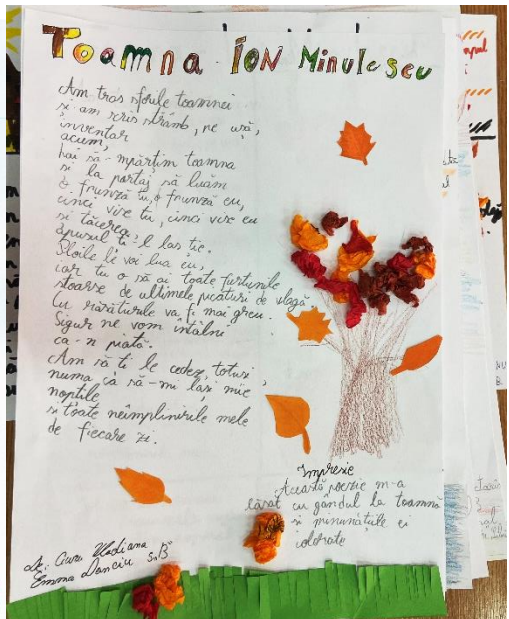 Toamna Ion Minulescu
Am tras sforile toamnei
și am scris strâmb, pe ușă,
inventar
acum,
hai să-mpărțim toamna
și la partaj să luăm
o frunză tu, o frunză eu,
cinci vise tu, cinci vise eu
și tăcerea.
Apusul ți-l las ție.
Ploile le voi lua eu,
iar tu o să ai toate furtunile
stoarse de ultimele picături de vlagă
Cu răsăriturile va fi mai greu.
Sigur ne vom întâlni
ca-n piață.
Am să ți le cedez, totuși,
numa' ca să-mi lași mie
nopțile
și toate neîmplinirile mele
de fiecare zi.
Impresie
Această poezie m-a
cărat cu gândul la toamnă
și minunățiile ei
colorate
De: Vladiana
Emma Danciu 5 B